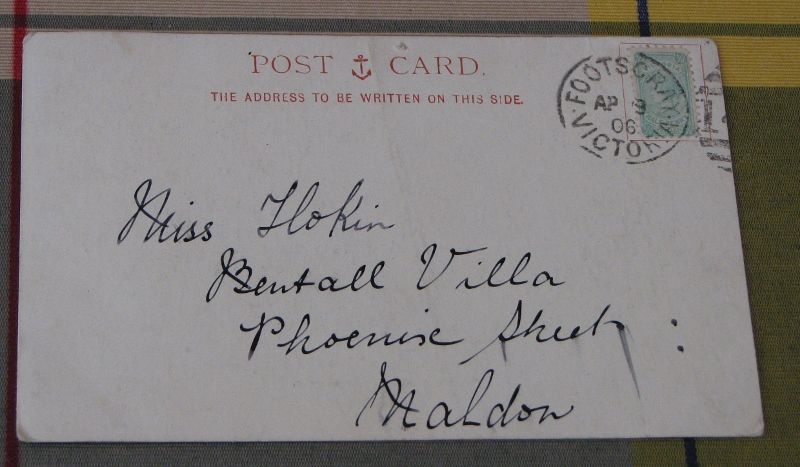 POST CARD.
THE ADDRESS TO BE WRITTEN ON THIS SIDE.
FOOTSCRAY
AP
06
VICTORIA
Miss
Bentall Villa
Phoenix Street
Maldon